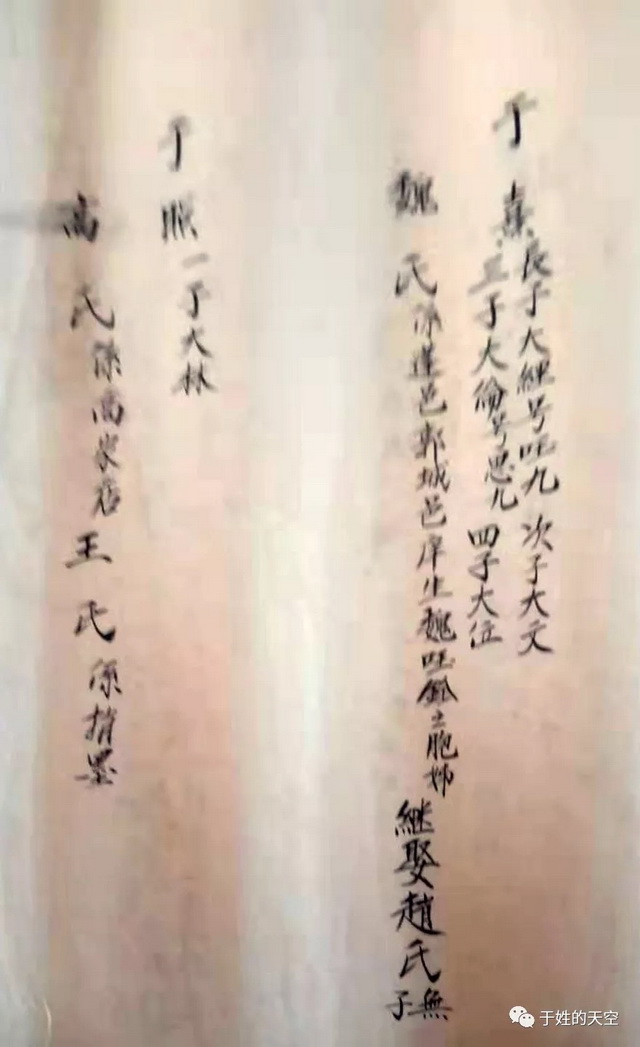 于熹
長子大經号旺九 次子大文
三子大倫号思九 四子大位
魏氏係蓬邑郭城邑庠生魏旺齡之胞姊 继娶趙氏無子
于照 一子大林
高氏係高家店 王氏係
于姓的天空